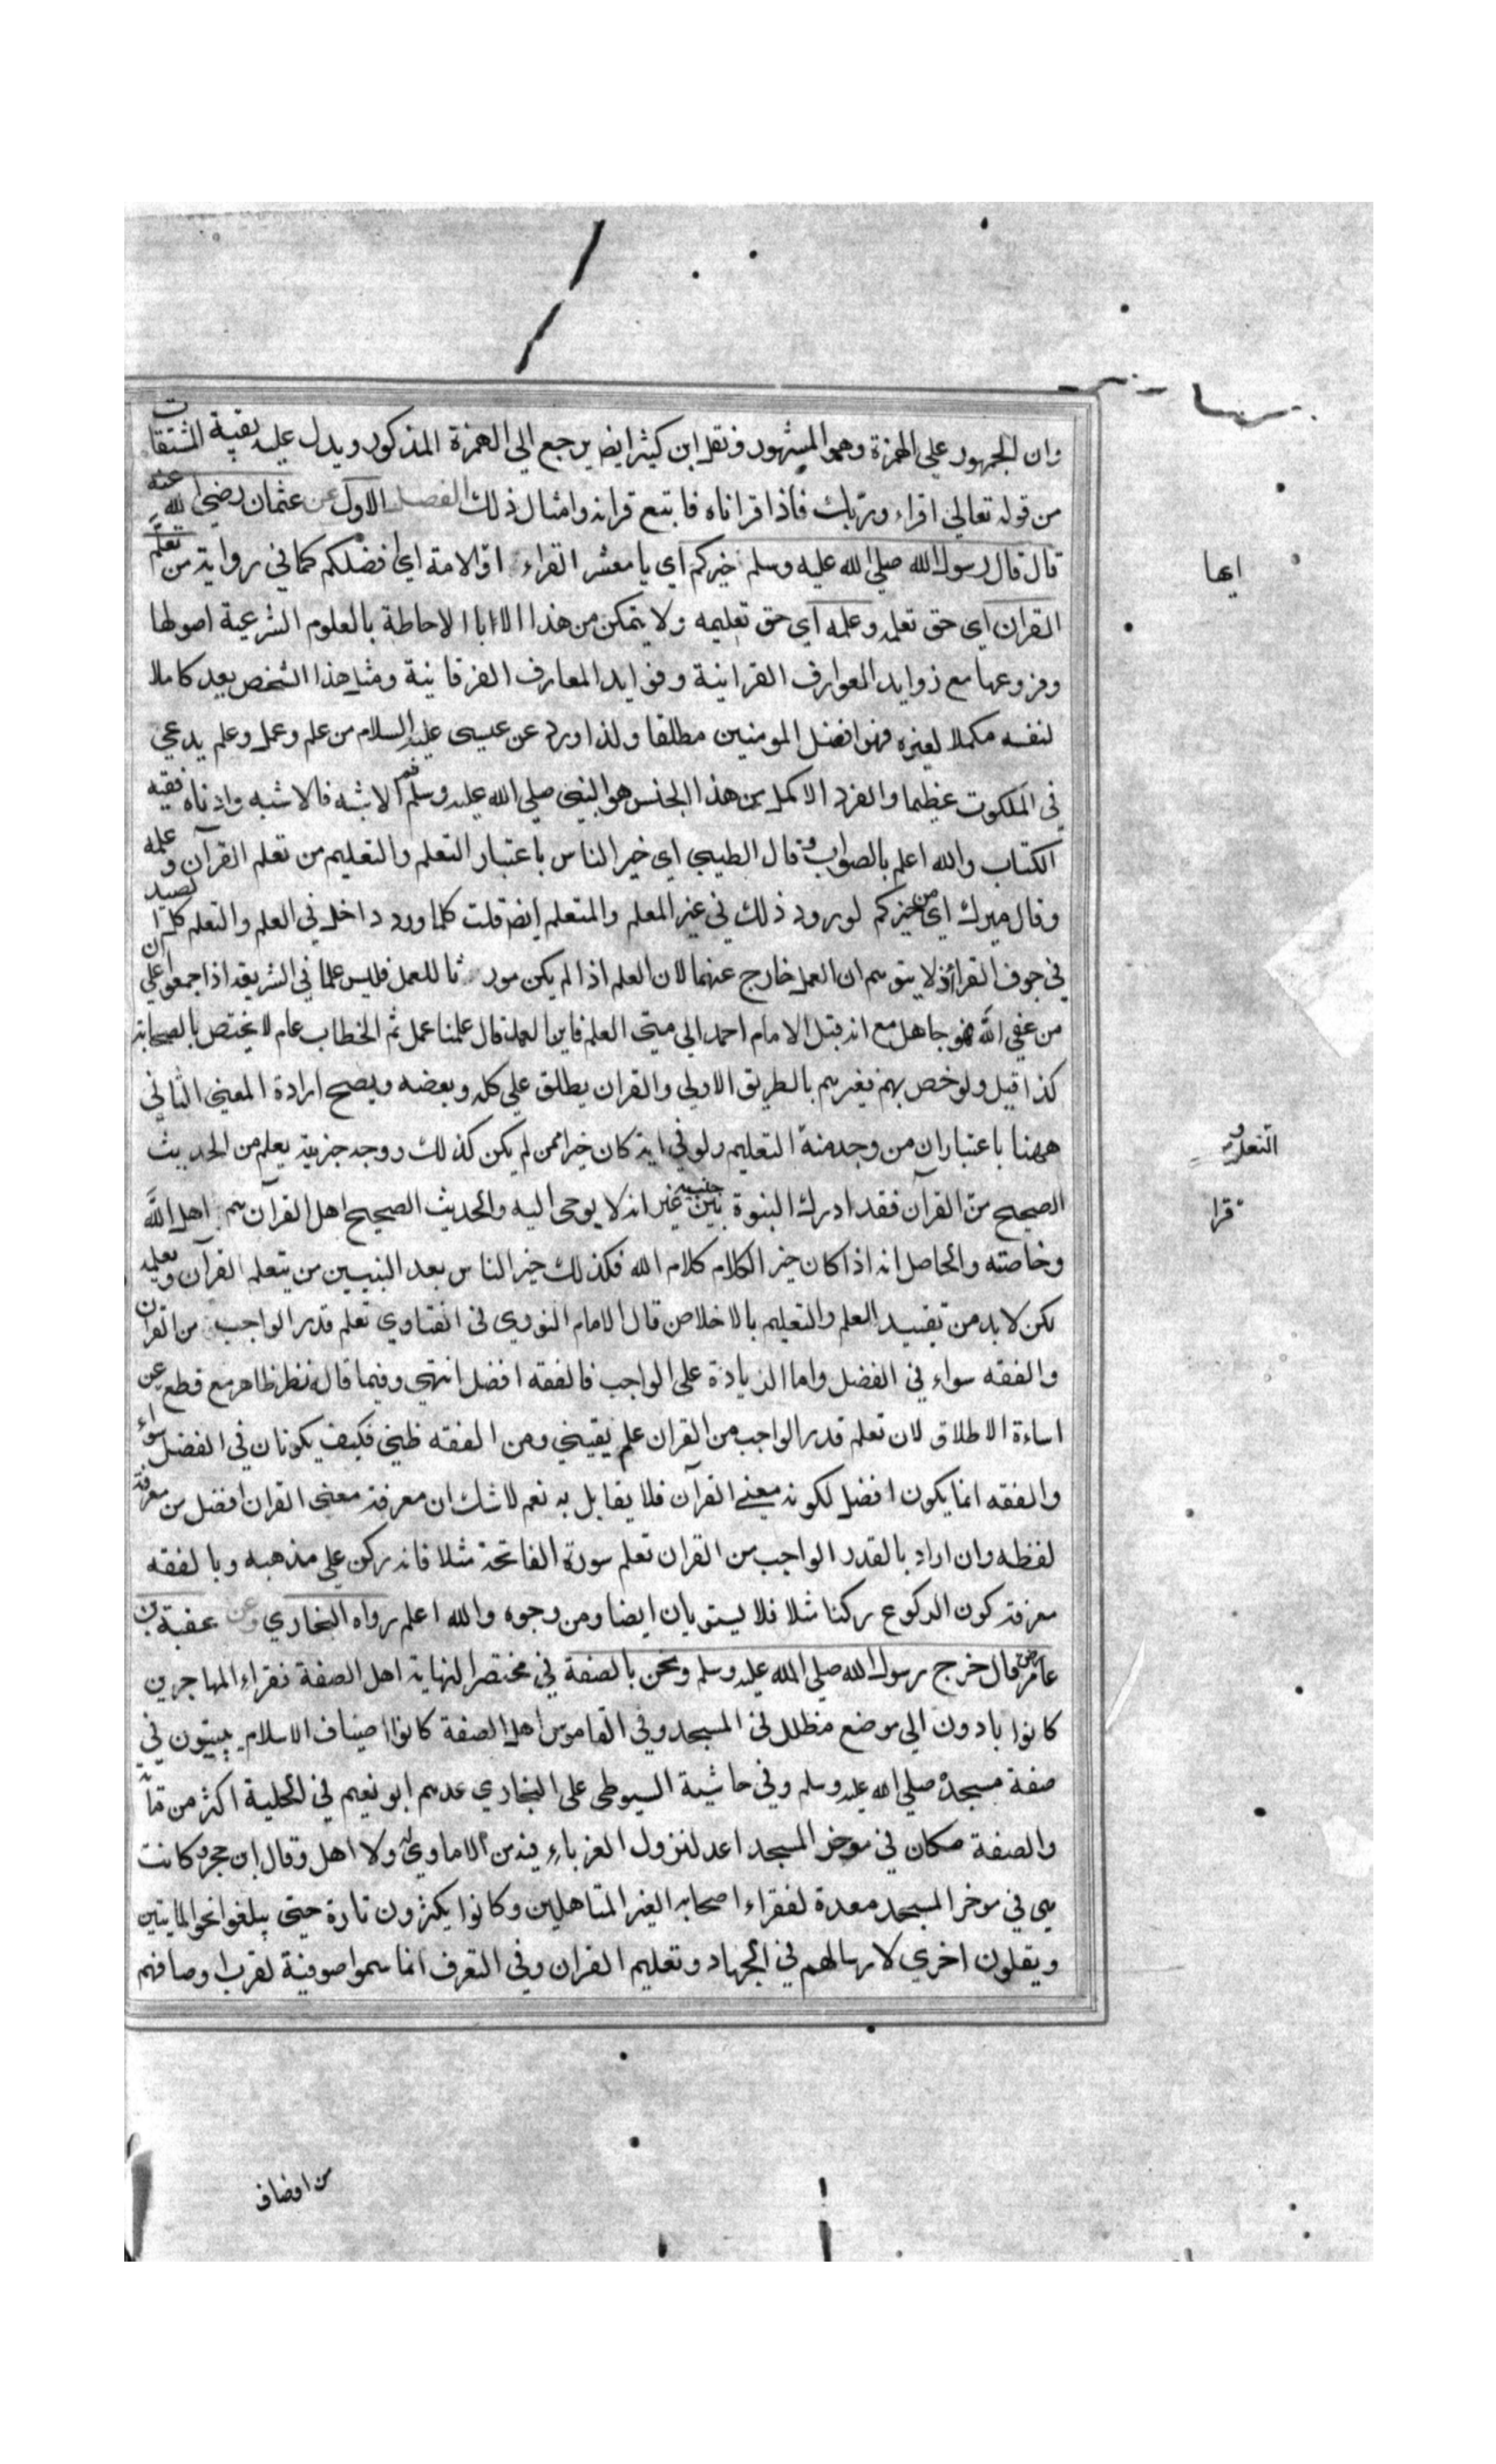 وان الجمهور علي الهمزة وهو المشهور ونقل ابن كثير ايضا يرجع الي الهمزة المذكور ويدل عليه بقية المشتقات
من قوله تعالي اقراء وربك فاذا قراناه فاتبع قرانه وامثال ذلك الفصل الاول عن عثمان رضي الله عنه
قال قال رسول الله صلي الله عليه وسلم خيركم اي يا معشر القراء او الامة اي افضلكم كما في رواية من تعلم
القران اي حق تعلمه وعلمه اي حق تعليمه ولا يتمكن من هذا الا بالاحاطة بالعلوم الشرعية اصولها
وفروعها مع زوايد العوارف القرانية وفوايد المعارف الفرقانية ومثل هذا الشخص يعد كاملا
لنفسه مكملا لغيره فهو افضل المومنين مطلقا ولذا ورد عن عيسى عليه السلام من علم وعمل وعلم يدعى
في الملكوت عظيما والفرد الاكمل من هذا الجنس هو النبي صلي الله عليه وسلم ثم الاشبه فالاشبه وادناه فقيه
الكتاب والله اعلم بالصواب وقال الطيبي اي خير الناس باعتبار التعلم والتعليم من تعلم القرآن وعلمه
وقال ميرك اي من خيركم لورود ذلك في غير المعلم والمتعلم ايضا قلت كلما ورد داخل في العلم والتعلم كل الصيد
في جوف الفرا ولا يتوهم ان العمل خارج عنهما لان العلم اذا لم يكن مورثا للعمل فليس علما في الشريعة اذ اجمعوا علي ان
من عصي الله فهو جاهل مع انه قيل الامام احمد الي متى العلم فاين العمل قال علمنا عمل ثم الخطاب عام لا يختص بالصحابة
كذا قيل ولو خص بهم فغيرهم بالطريق الاولي والقران يطلق علي كله وبعضه ويصح ارادة المعنى الثاني
ههنا باعتبار ان من وجد منه التعليم ولو في اية كان خيرا ممن لم يكن كذلك ووجه خيرية يعلم من الحديث
الصحيح من القرآن فقد ادرك النبوة بين جنبيه غير انه لا يوحى اليه والحديث الصحيح اهل القرآن هم اهل الله
وخاصته والحاصل انه اذا كان خير الكلام كلام الله فكذلك خير الناس بعد النبيين من يتعلم القرآن ويعلمه
لكن لا بد من تقييد العلم والتعليم بالاخلاص قال الامام النووي في الفتاوي تعلم قدر الواجب من القران
والفقه سواء في الفضل واما الزيادة على الواجب فالفقه افضل انتهي وفيما قاله نظر ظاهر مع قطع عن
اساءة الاطلاق لان تعلم قدر الواجب من القران علم يقيني ومن الفقه ظني فكيف يكونان في الفضل سواء
والفقه انما يكون افضل لكونه معنى القرآن فلا يقابل به نعم لا شك ان معرفة معنى القران افضل من معرفة
لفظه وان اراد بالقدر الواجب من القران تعلم سورة الفاتحة مثلا فانه ركن علي مذهبه وبالفقه
معرفة كون الركوع ركنا مثلا فلا يستويان ايضا ومن وجوه والله اعلم رواه البخاري وعن عقبة بن
عامر رض قال خرج رسول الله صلي الله عليه وسلم ونحن بالصفة في مختصر النهاية اهل الصفة فقراء المهاجرين
كانوا يادون الي موضع مظلل في المسجد وفي القاموس اهل الصفة كانوا اضياف الاسلام يبيتون في
صفة مسجده صلي الله عليه وسلم وفي حاشية السيوطي على البخاري عدهم ابو نعيم في الحلية اكثر من مأة
والصفة مكان في موخر المسجد اعد لنزول الغرباء فيه من لا ماوي له ولا اهل وقال ابن حجر وكانت
هي في موخر المسجد معدة لفقراء اصحابه الغير المتاهلين وكانوا يكثرون تارة حتى يبلغوا نحو المايتين
ويقلون اخري لارسالهم في الجهاد وتعليم القران وفي التعرف انما سموا صوفية لقرب اوصافهم
من اوصاف
ايها
التعلم و
قرا